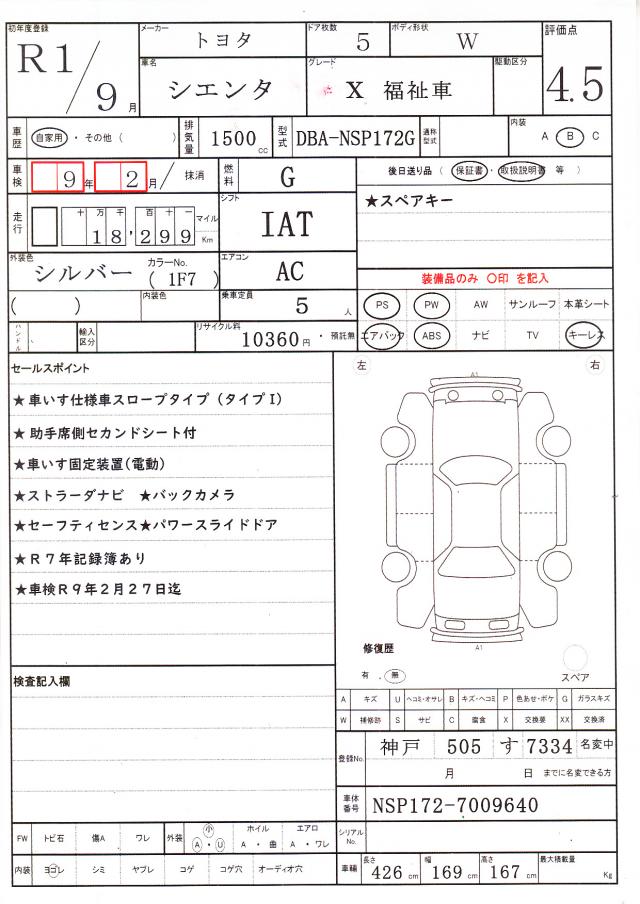 初年度登録 R1/9月
メーカー トヨタ ドア枚数 5 ボディ形状 W
評価点 4.5
車名 シエンタ グレード X 福祉車 駆動区分
車歴 自家用 ・ その他 ( )
排気量 1500 cc 型式 DBA-NSP172G 通称型式
内装 A B C
車検 9年 2月 / 抹消
燃料 G
後日送り品 ( 保証書 ・ 取扱説明書 等 )
★スペアキー
走行 十万千百十一 18,299 マイル Km
シフト IAT
外装色 シルバー カラーNo. ( 1F7 )
エアコン AC
装備品のみ 〇印 を記入
( ) 内装色
乗車定員 5 人
PS PW AW サンルーフ 本革シート
エアバック ABS ナビ TV キーレス
ハンドル 輸入区分
リサイクル料 10360円 ・ 預託無
セールスポイント
左 右
A1
★車いす仕様車スロープタイプ (タイプI)
★助手席側セカンドシート付
★車いす固定装置(電動)
★ストラーダナビ ★バックカメラ
★セーフティセンス★パワースライドドア
★R7年記録簿あり
★車検R9年2月27日迄
修復歴
有 . 無
A1
スペア
検査記入欄
A キズ U ヘコミ・オサレ B キズ・ヘコミ P 色あせ・ボケ G ガラスキズ
W 補修跡 S サビ C 腐食 X 交換要 XX 交換済
登録No. 神戸 505 す 7334 名変中
月 日 までに名変できる方
車体番号 NSP172-7009640
FW トビ石 傷A ワレ 外装 小 A ・ U ホイル A ・ 曲 エアロ A ・ ワレ
シリアルNo.
内装 ヨゴレ シミ ヤブレ コゲ コゲ穴 オーディオ穴
車輛 長さ 426 cm 幅 169 cm 高さ 167 cm 最大積載量 Kg